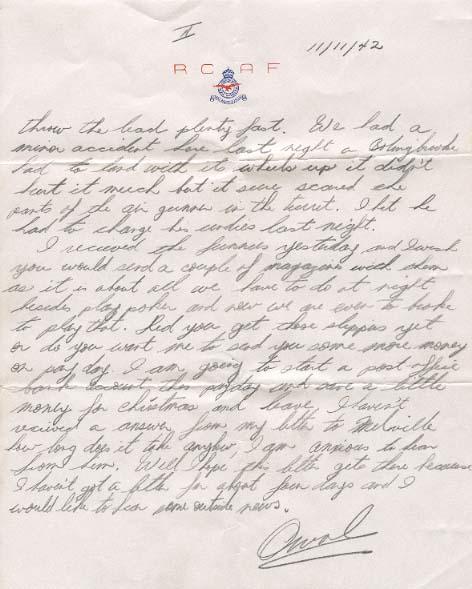 II
11/11/42
R C A F
throw the lead plenty fast. We had a
minor accident here last night a Bolingbroke
had to land with it wheels up it didn't
hurt it much but it sure scared the
pants of the air gunner in the turret. I bet he
had to change his undies last night.
I received the funnies yesterday and I wish
you would send a couple of magazines with them
as it is about all we have to do at night
besides play poker and now we are even to broke
to play that. Did you get those slippers yet
or do you want me to send you some more money
on pay day. I am going to start a post office
bank account this payday and save a little
money for christmas and leave. I haven't
received a answer from my letter to Melville
how long does it take anyhow I am anxious to hear
from him. Well I hope this letter gets there because
I haven't got a letter for about four days and I
would like to hear some outside news.
Orval